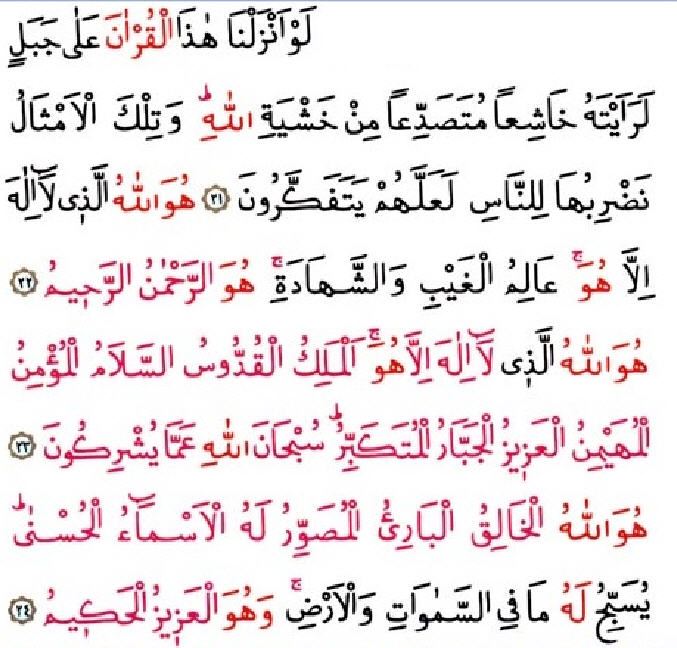 لَوْ اَنْزَلْنَا هٰذَا الْقُرْاٰنَ عَلٰى جَبَلٍ
لَرَاَيْتَهُ خَاشِعاً مُتَصَدِّعاً مِنْ خَشْيَةِ اللّٰهِۜ وَتِلْكَ الْاَمْثَالُ
نَضْرِبُهَا لِلنَّاسِ لَعَلَّهُمْ يَتَفَكَّرُونَ ﴿٢١﴾ هُوَ اللّٰهُ الَّذٖى لَٓا اِلٰهَ
اِلَّا هُوَۚ عَالِمُ الْغَيْبِ وَالشَّهَادَةِۚ هُوَ الرَّحْمٰنُ الرَّحٖيمُ ﴿٢٢﴾
هُوَ اللّٰهُ الَّذٖى لَٓا اِلٰهَ اِلَّا هُوَۚ اَلْمَلِكُ الْقُدُّوسُ السَّلَامُ الْمُؤْمِنُ
الْمُهَيْمِنُ الْعَزٖيزُ الْجَبَّارُ الْمُتَكَبِّرُۜ سُبْحَانَ اللّٰهِ عَمَّا يُشْرِكُونَ ﴿٢٣﴾
هُوَ اللّٰهُ الْخَالِقُ الْبَارِئُ الْمُصَوِّرُ لَهُ الْاَسْمَٓاءُ الْحُسْنٰىۜ
يُسَبِّحُ لَهُ مَا فِى السَّمٰوَاتِ وَالْاَرْضِۚ وَهُوَ الْعَزٖيزُ الْحَكٖيمُ ﴿٢٤﴾